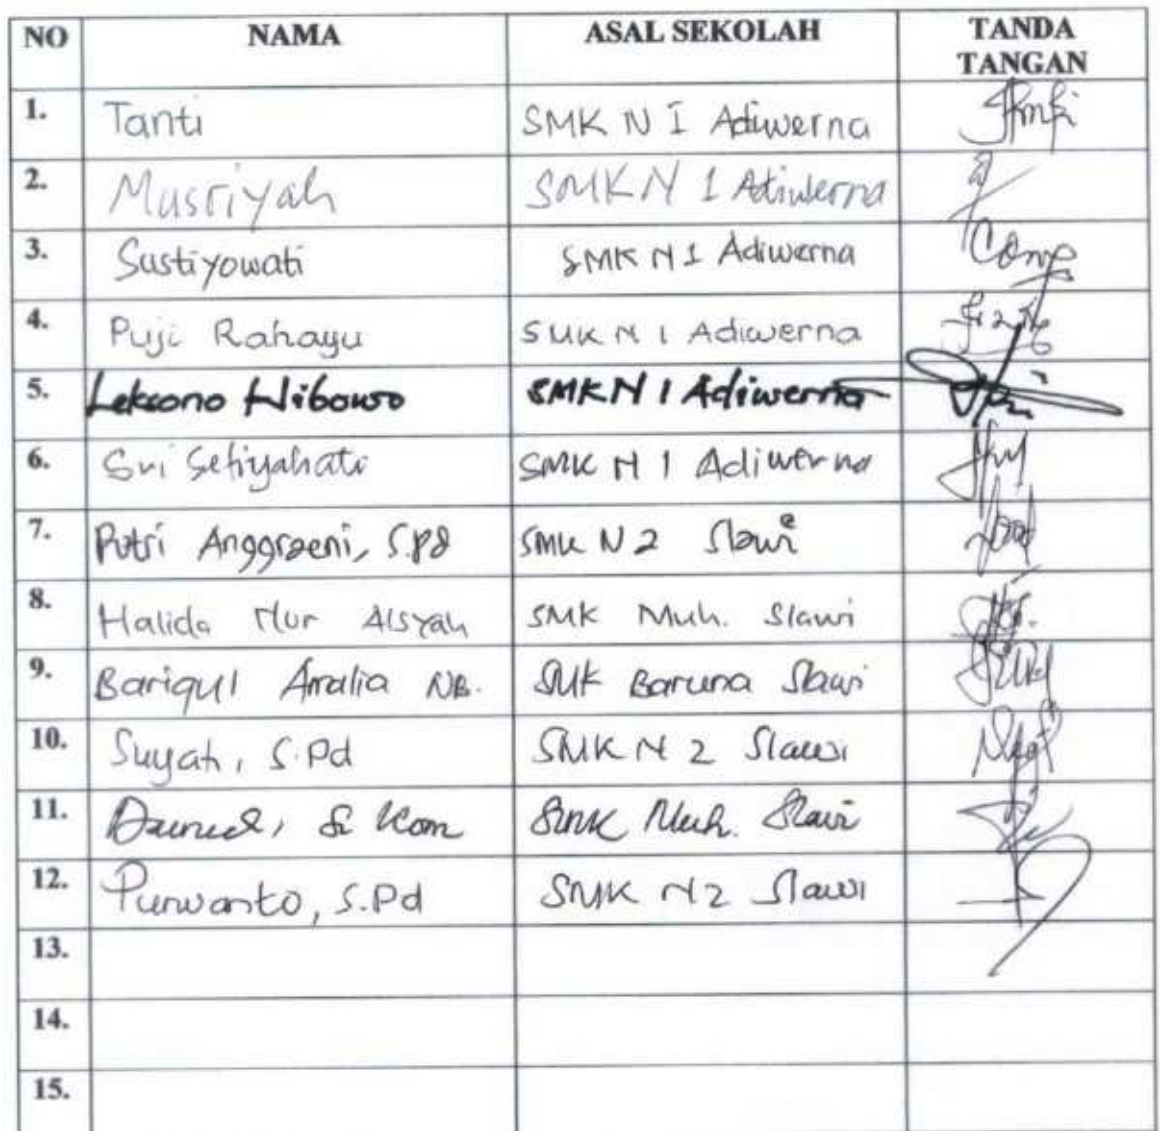 NO NAMA ASAL SEKOLAH TANDA TANGAN
1. Tanti SMK N I Adiwerna
2. Musriyah SMK N 1 Adiwerna
3. Sustiyowati SMK N 1 Adiwerna
4. Puji Rahayu SMK N 1 Adiwerna
5. Leksono Wibowo SMK N 1 Adiwerna
6. Sri Setiyahati SMK N 1 Adiwerna
7. Putri Anggraeni, S.Pd SMK N 2 Slawi
8. Halida Nur Aisyah SMK Muh. Slawi
9. Bariqul Amalia NB. SMK Baruna Slawi
10. Suyah, S.Pd SMK N 2 Slawi
11. S. Kom SMK Muh. Slawi
12. Purwanto, S.Pd SMK N 2 Slawi
13.
14.
15.